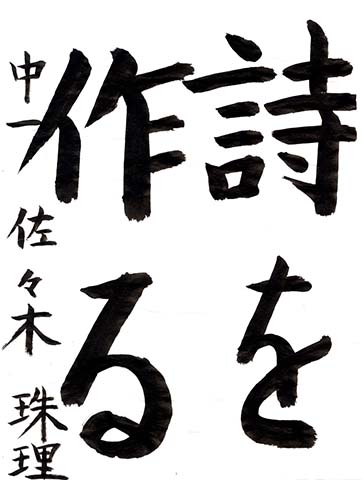 詩を
作る
中一 佐々木 珠理